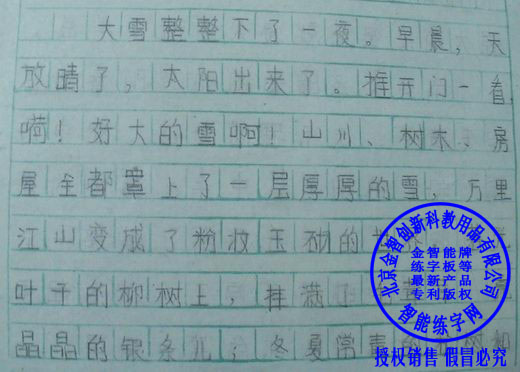 大雪整整下了一夜。早晨，天
放晴了，太阳出来了。推开门一看，
嗬！好大的雪啊！山川、树木、房
屋全都罩上了一层厚厚的雪，万里
江山变成了粉妆玉砌的
叶子的柳树上，挂满了
晶晶的银条儿；冬夏常青的
北京金智创新科教用品有限公司
金智能牌
练字板等
最新产品
专利版权
智能练字网
授权销售 假冒必究